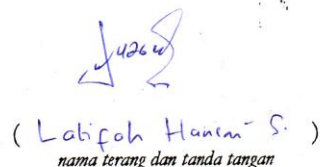 ( Latifah Hanum S. )
nama terang dan tanda tangan